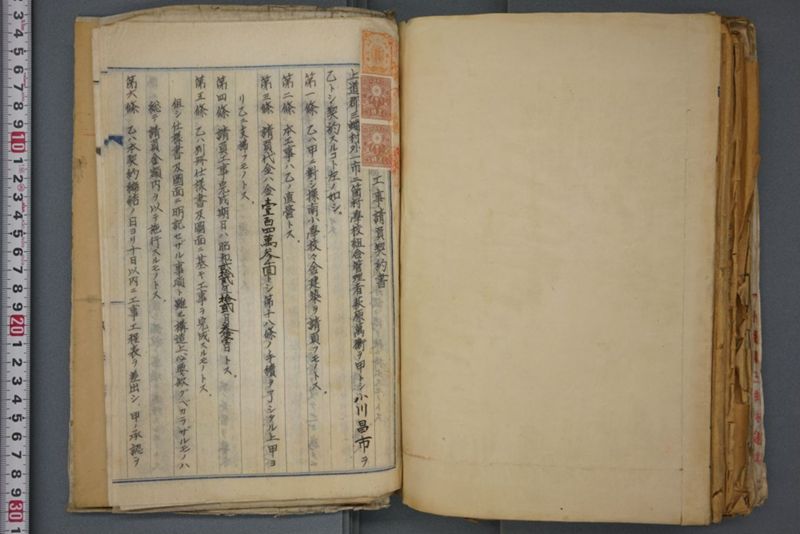 工事請負契約書
上道郡三蟠村外一市二箇村学校組合管理者萩原萬衛ヲ甲トシ小川昌市ヲ
乙トシ契約スルコト左ノ如シ。
第一條 乙ハ甲ニ対シ操南小学校々舎建築ヲ請負フモノトス。
第二條 本工事ハ乙ノ直営トス。
第三條 請負代金ハ金壹百四萬参千圓トシ第十八條ノ手続ヲ了シタル上甲ヨ
リ乙ニ支拂フモノトス。
第四條 請負工事ノ完成期日ハ昭和 年拾弐月参壹日トス。
第五條 乙ハ別冊仕様書及図面ニ基キ工事ヲ完成スルモノトス。
但シ仕様書及図面ニ明記セザル事項ト雖モ構造上必要欠クベカラザルモノハ
総テ請負金額内ヲ以テ施行スルモノトス。
第六條 乙ハ本契約締結ノ日ヨリ十日以内ニ工事工程表ヲ差出シ、甲ノ承認ヲ